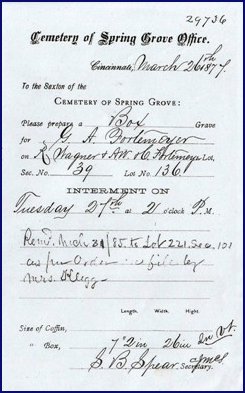 29736
Cemetery of Spring Grove Office.
Cincinnati, March 26th 1877.
To the Sexton of the
CEMETERY OF SPRING GROVE:
Please prepare a Box Grave
for G. A. Fortmeyer
on R. Wagner & A.W. & C. Fortmeyer Lot,
Sec. No. 39 Lot No. 136
INTERMENT ON
Tuesday 27th at 2 o'clock P.M.
Remd. Mch 31/85 to Lot 221. Sec. 101
as per Order on file by
Mrs.
Length. Width. Hight.
Size of Coffin,
" Box, 7" 2 in 26 in
S. B. Spear
Secretary.